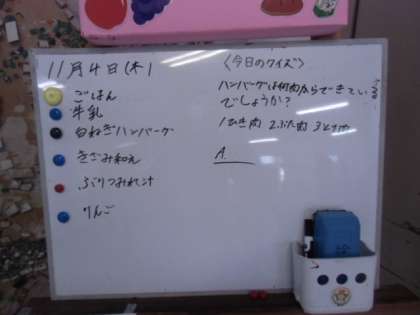 11月4日(木)
ごはん
牛乳
白ねぎハンバーグ
きざみ和え
ぶりつみれ汁
りんご
〈今日のクイズ〉
ハンバーグは何肉からできている
でしょうか?
2.ぶた肉
A.